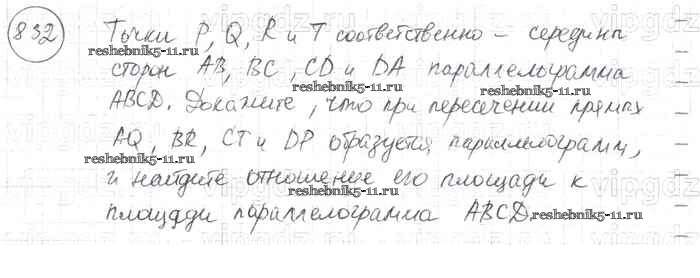 832 Точки P, Q, R и T соответственно – середины
reshebnik5-11.ru
сторон AB, BC, CD и DA параллелограмма
reshebnik5-11.ru
ABCD. Докажите, что при пересечении прямых
reshebnik5-11.ru
AQ, BR, CT и DP образуется параллелограмм,
reshebnik5-11.ru
и найдите отношение его площади к
reshebnik5-11.ru
площади параллелограмма ABCD.
reshebnik5-11.ru